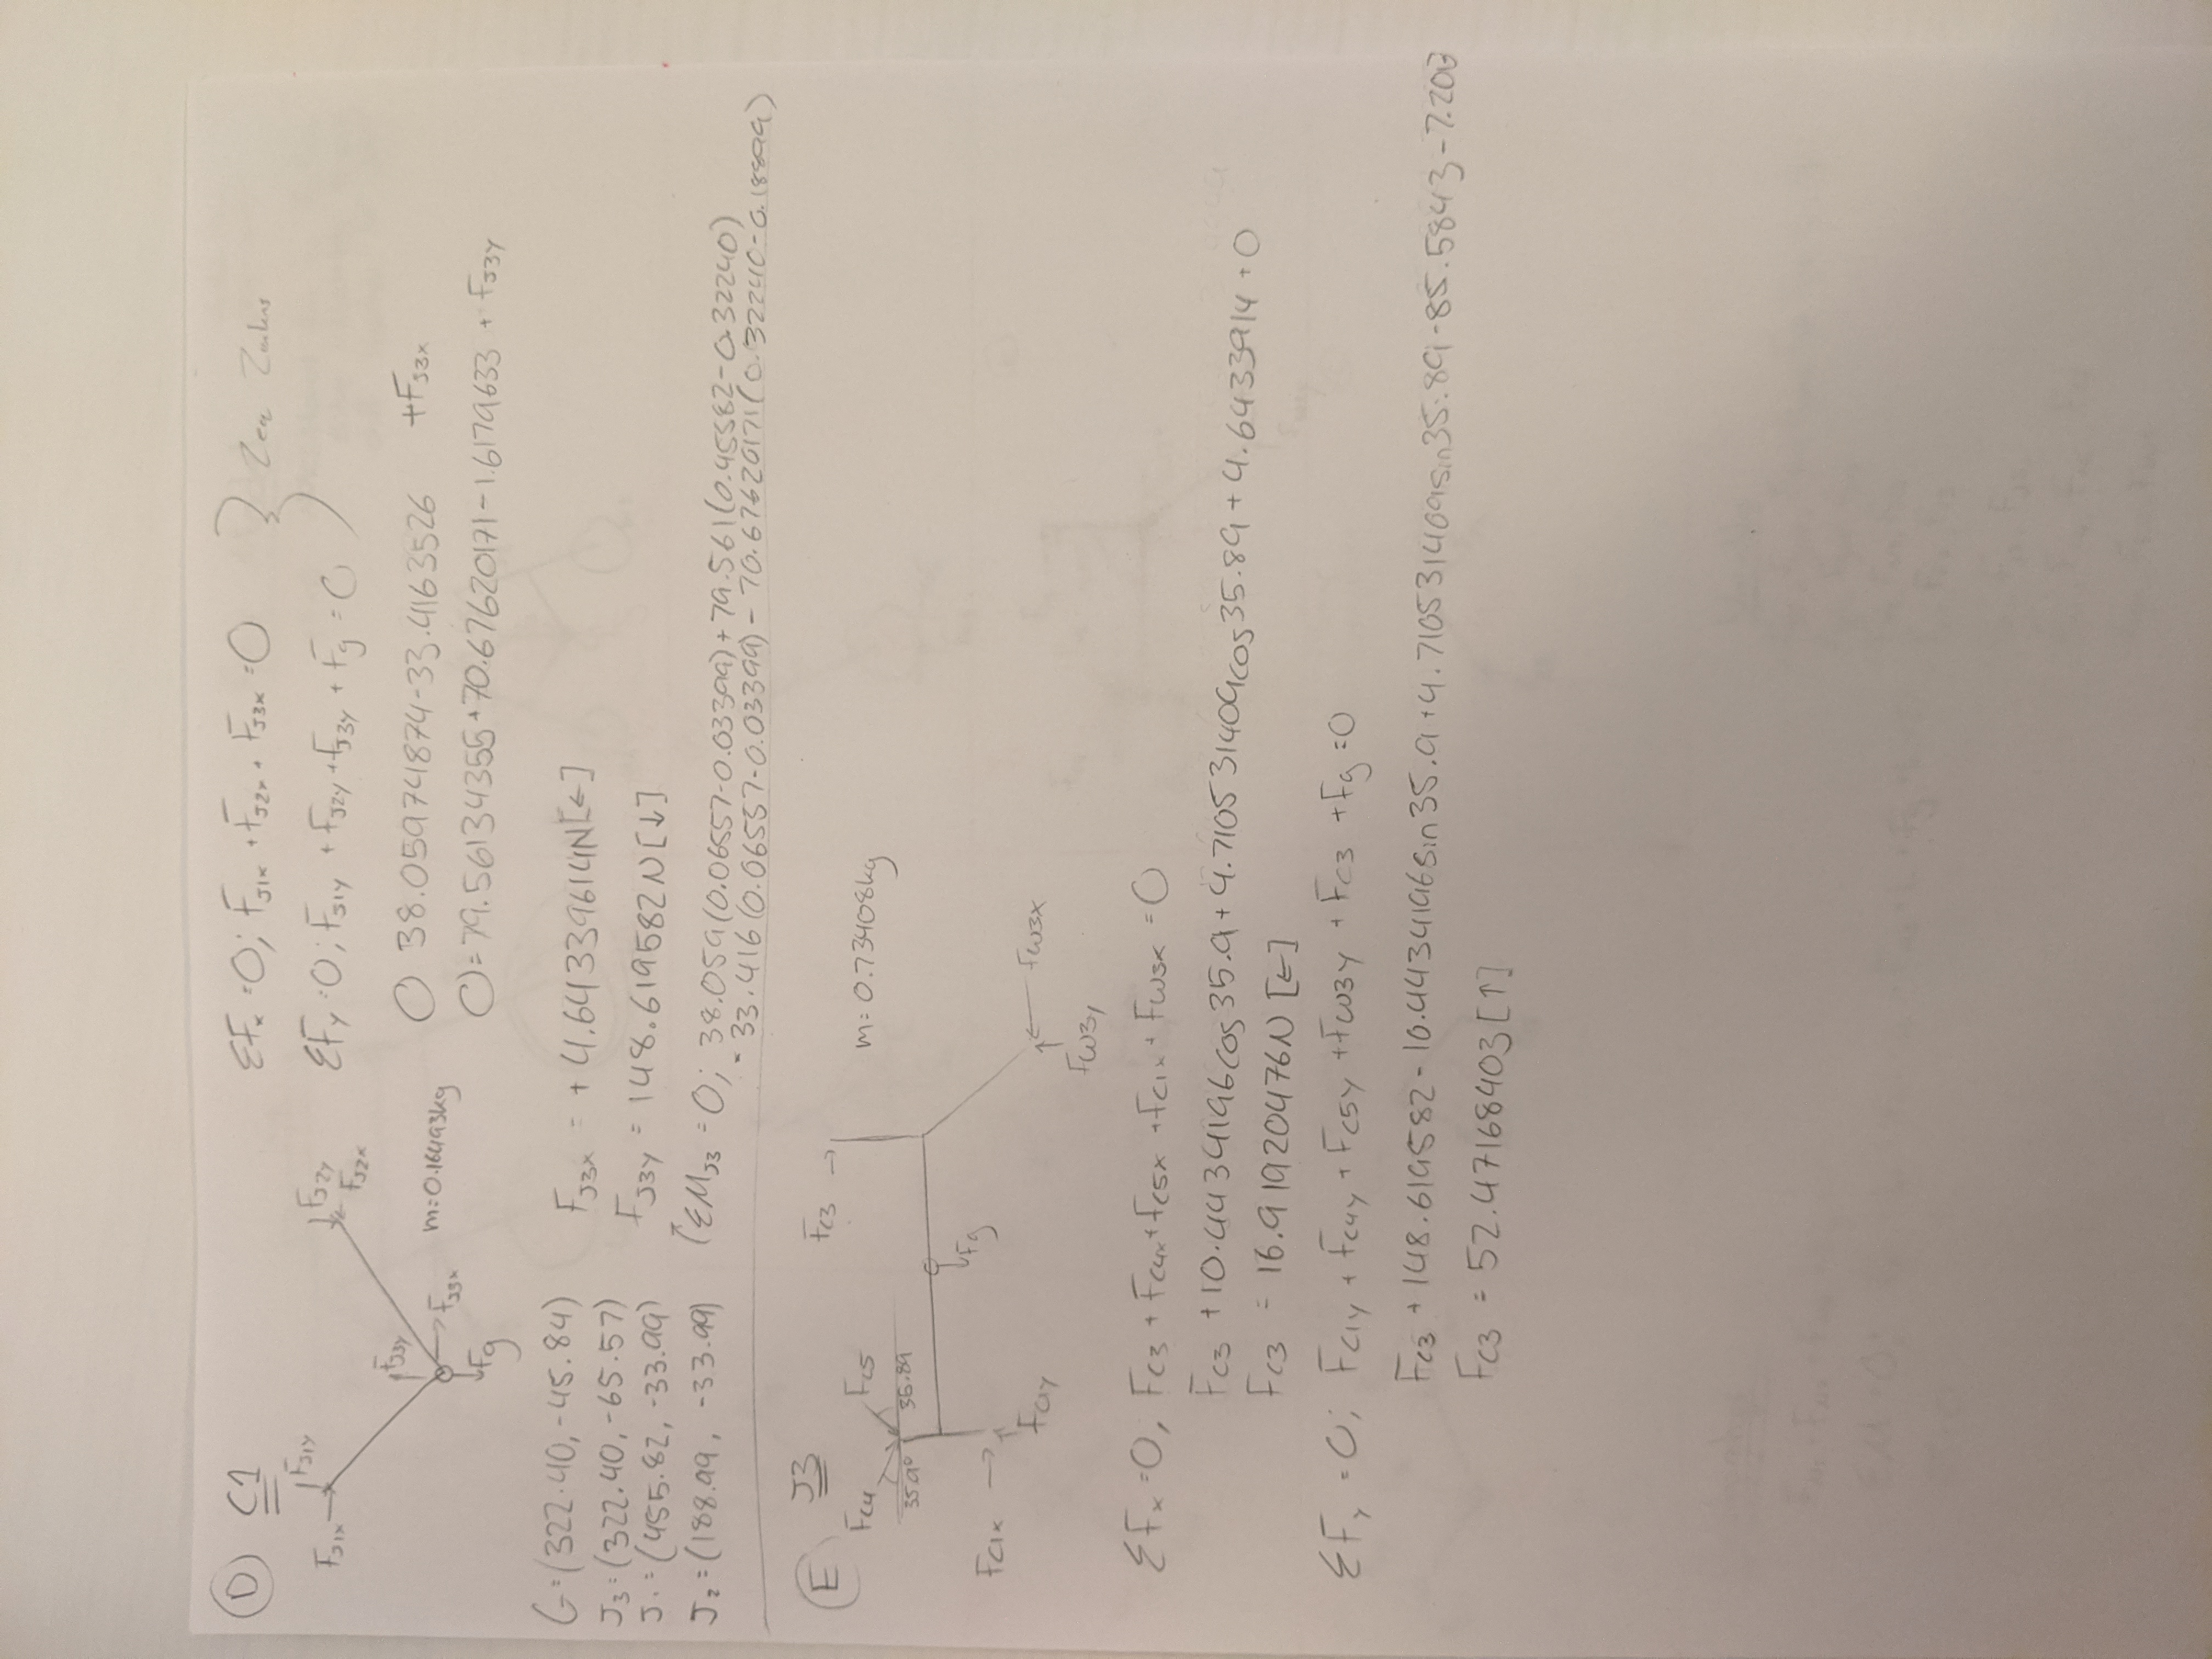 D C1
ΣFx=0; FJ1x + FJ2x + FJ3x =0
ΣFy=0; FJ1y + FJ2y + FJ3y + Fg = 0
FJ1y
FJ1x
FJ2y
FJ2x
FJ3y
FJ3x
Fg
m=0.16493kg
0 38.05974874-33.4163526 +FJ3x
0=79.56134355+70.67620171-1.6179633 + FJ3y
G=(322.40,-45.84)
J3=(322.40,-65.57)
J1=(455.82,-33.99)
J2=(188.99, -33.99)
FJ3x = +4.64339614N[←]
FJ3y = 148.619582N[↓]
ΣMJ3 = 0; 38.059(0.06557-0.03399)+79.561(0.45582-0.32240)
-33.416(0.06557-0.03399)-70.67620171(0.32240-0.18899)
E J3
Fc4 Fc5
35.9° 35.89
Fc3
m=0.73408kg
Fg
Fc1x
Fc1y
Fw3x
Fw3y
ΣFx=0, Fc3 + Fc4x+Fc5x +Fc1x+ Fw3x =0
Fc3 +10.4434196cos35.9+4.710531409cos35.89+4.6433914+0
Fc3 = 16.91920476N [←]
ΣFy =0; Fc1y + Fc4y + Fc5y +Fw3y + Fc3 +Fg=0
Fc3 +148.619582-10.4434196sin35.9+4.710531409sin35.89-85.5843-7.203
Fc3 = 52.47168403[↑]